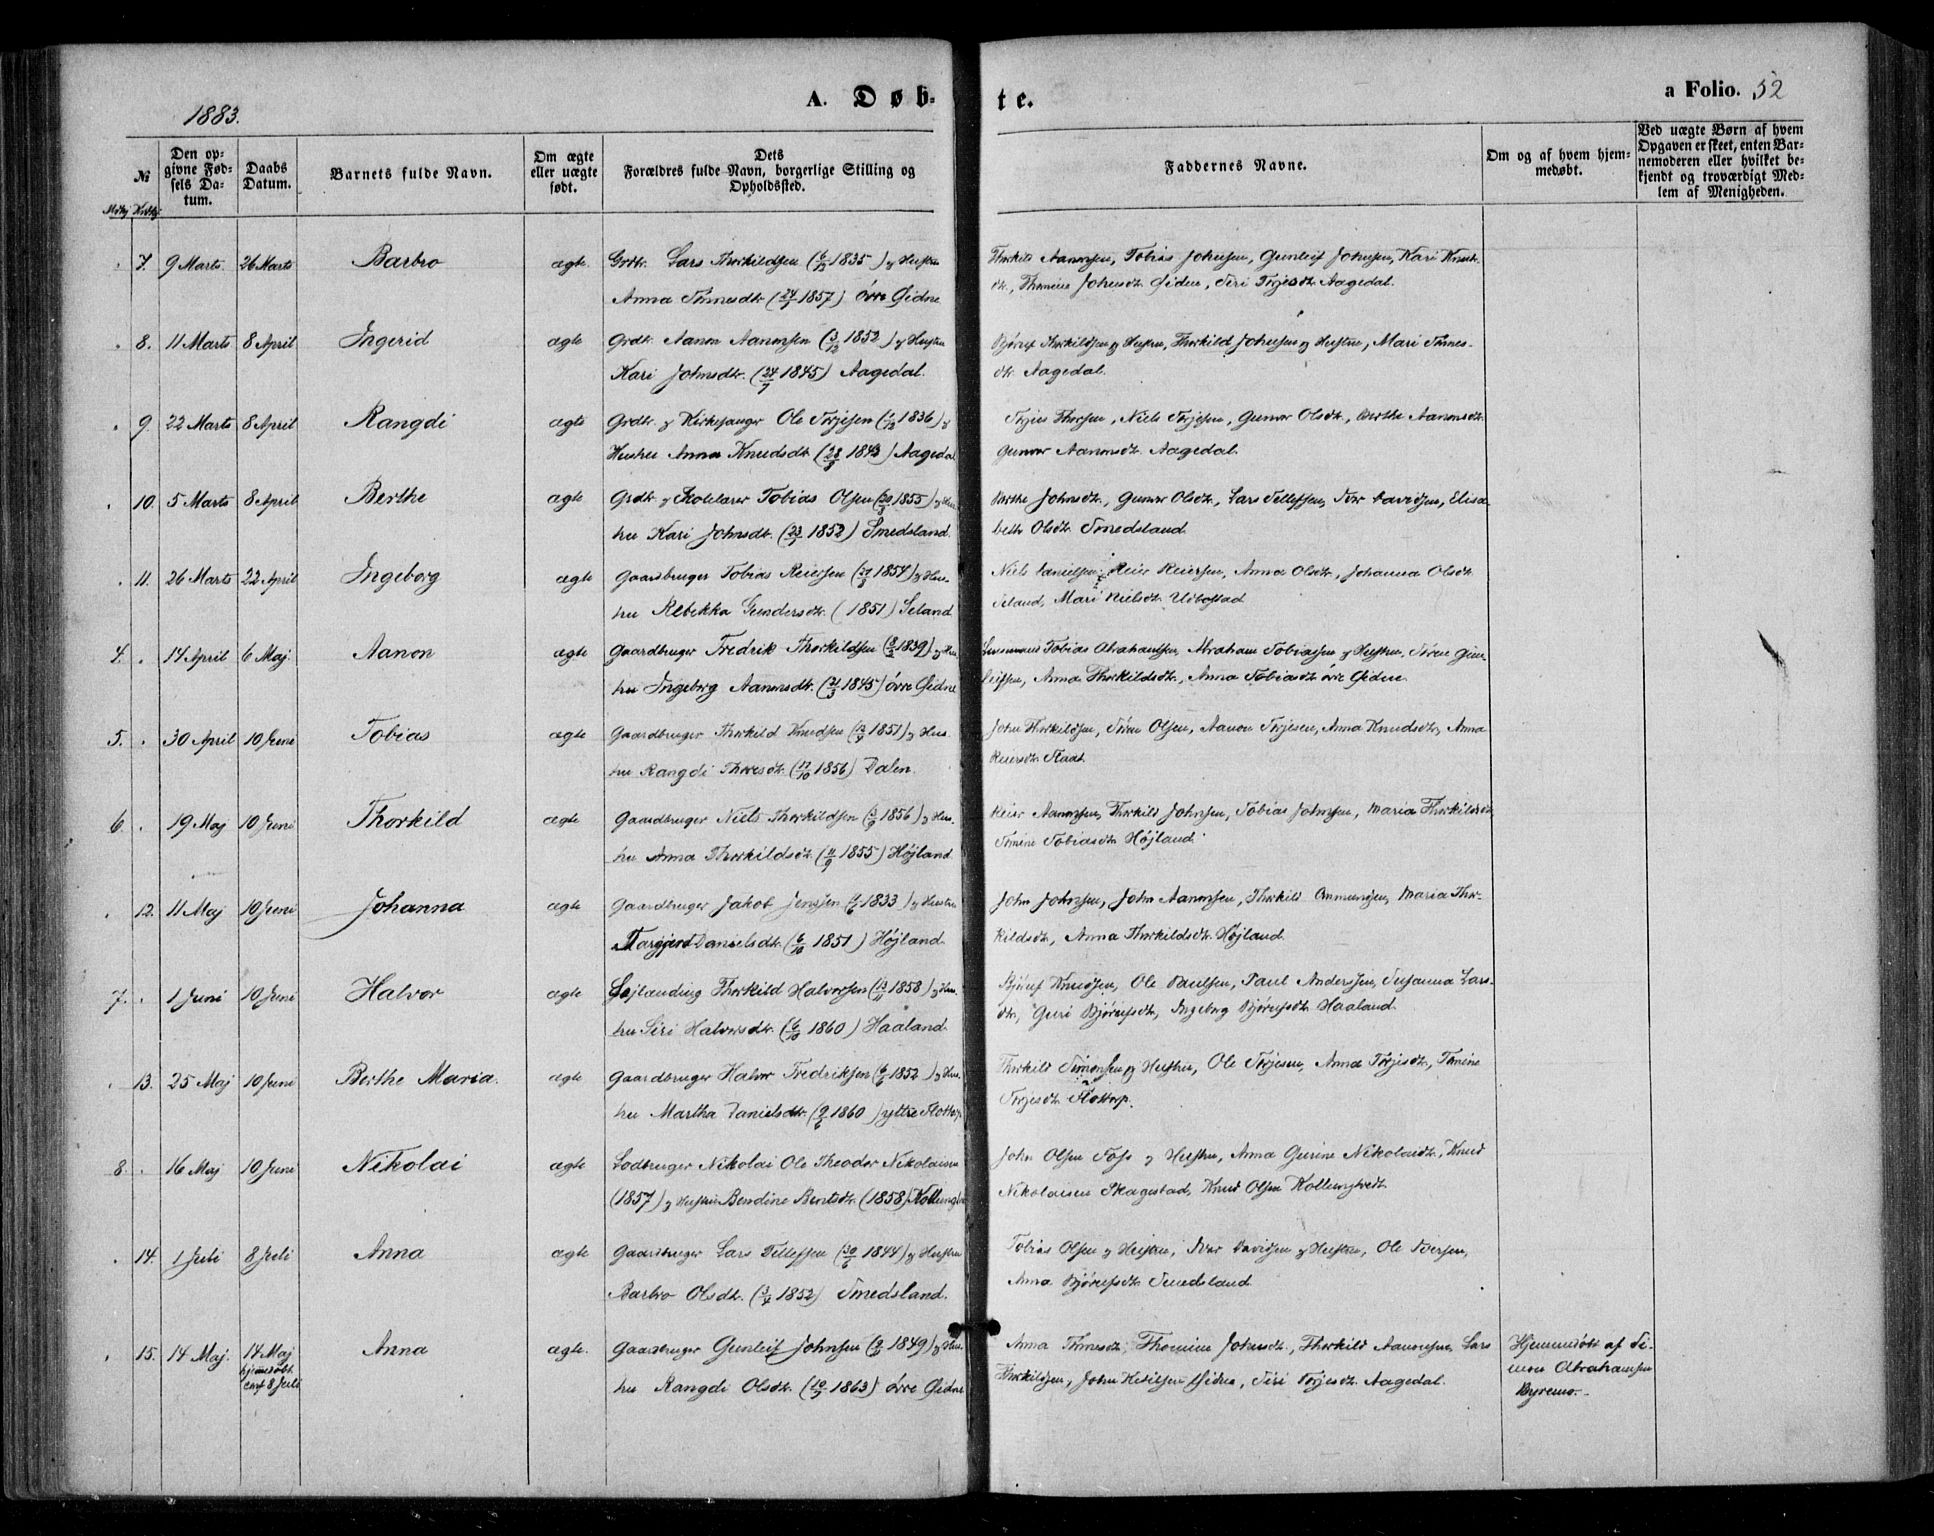 1883.
A. Døb-
te.
a Folio. 52
№
Mdkj Kvdkj
Den op-
givne Fød-
sels Da-
tum.
Daabs
Datum.
Barnets fulde Navn.
Om ægte
eller uægte
født.
Dets
Forældres fulde Navn, borgerlige Stilling og
Opholdssted.
Faddernes Navne.
Om og af hvem hjem-
medøbt.
Ved uægte Børn af hvem
Opgaven er skeet, enten Bar-
nemoderen eller hvilket be-
kjendt og troværdigt Med-
lem af Menigheden.
7. 9 Marts. 26 Marts Barbro ægte. Grdbr. Lars Thorkildsen (6/12 1835) og Hustru
Anna Simesdtr. (24/7 1857) övre Eidne
Thorkild Aanonsen, Tobias Johnsen, Gunleif Johnsen, Kari Knuds-
dtr., Thomine Johnsdtr. Eidne, Siri Torjesdtr. Aagedal.
8. 11 Marts 8 April Ingerid ægte Grdbr. Aanon Aanonsen (3/12 1852) og Hustru
Kari Johnsdtr. (24/7 1845) Aagedal.
Bjórulf Thorkildsen og Hustru, Thorkild Johnsen og Hustru, Mari Simes-
dtr. Aagedal.
9. 22 Marts 8 April Rangdi ægte Grdbr. og Kirkesanger Ole Torjesen (1/12 1836) og
Hustru Anna Knudsdtr. (28/5 1843) Aagedal
Torjus Thorsen, Niels Torjesen, Gunvor Olsdtr., Berthe Aanonsdtr.
Gunvor Aanonsdtr. Aagedal.
10. 5 Marts 8 April Berthe ægte Grdbr. og Skolelærer Tobias Olsen (20/3 1855) og Hus-
tru Kari Johnsdtr. (23/7 1852) Smedsland.
Berthe Johnsdtr., Gunvor Olsdtr., Lars Tellefsen, Ivar Davidsen, Elisa-
beth Olsdtr. Smedsland.
11. 26 Marts 22 April Ingeborg ægte Gaardbruger Tobias Reiersen (27/8 1854) og Hus-
tru Rebekka Gundersdtr. ( 1851) Seland
Niels Danielsen, Reier Reiersen, Anna Olsdtr., Johanna Olsdtr.
Seland, Mari Nielsdtr. Udbostad
4. 14 April 6 Maj. Aanon ægte Gaardbruger Fredrik Thorkildsen (8/2 1839) og Hus-
tru Ingeborg Aanonsdtr. (21/3 1845) övre Eidne
Lensmand Tobias Abrahamsen, Abraham Tobiassen og Hustru, Sören Gun-
leifsen, Anna Thorkildsdtr., Anna Tobiasdtr. övre Eidne.
5. 30 April 10 Juni Tobias ægte Gaardbruger Thorkild Knudsen (12/9 1851) og Hus-
tru Rangdi Thoresdtr. (17/10 1856) Dalen.
John Thorkildsen, Sören Olsen, Aanon Torjesen, Anna Knudsdtr., Anna
Reiersdtr. Flaat.
6. 19 Maj 10 Juni Thorkild ægte Gaardbruger Niels Thorkildsen (5/9 1856) og Hus-
tru Anna Thorkildsdtr. (11/9 1855) Höjland
Reier Aanonsen, Thorkild Johnsen, Tobias Johnsen, Maria Thorkildsdtr,
Simine Tobiasdtr. Höjland.
12. 11 Maj 10 Juni Johanna ægte Gaardbruger Jakob Jenssen (9/6 1833) og Hustru
Targjerd Danielsdtr. (6/10 1851) Höjland.
John Johnsen, John Aanonsen, Thorkild Ommundsen, Maria Thor-
kildsdtr., Anna Thorkildsdtr. Höjland.
7. 1 Juni 10 Juni Halvor ægte Lejlænding Thorkild Halvorsen (13/11 1858) og Hus-
tru Siri Halvorsdtr. (6/10 1860) Haaland.
Bjórulf Knudsen, Ole Paulsen, Paul Andersen, Susanna Lars-
dtr., Guri Bjórulfsdtr., Ingeborg Bjórulfsdtr. Haaland.
13. 25 Maj 10 Juni Berthe Maria. ægte Gaardbruger Halvor Fredriksen (6/2 1852) og Hus-
tru Martha Danielsdtr. (9/6 1860) yttre Flottorp
Thorkild Simonsen og Hustru, Ole Torjesen, Anna Torjesdtr., Simine
Torjesdtr. Flottorp.
8. 16 Maj 10 Juni Nikolai ægte Lodbruger Nikolai Ole Theodor Nikolaisen
(1857) og Hustru Bendine Berntsdtr. (1858) Kollung
John Olsen Foss og Hustru, Anna Gurine Nikolaidtr., Knud
Nikolaisen Skagestad, Knud Olsen Kollungtvedt.
14. 1 Juli 8 Juli Anna ægte Gaardbruger Lars Tellefsen (30/6 1844) og Hustru
Barbro Olsdtr. (3/4 1852) Smedsland.
Tobias Olsen og Hustru, Ivar Davidsen og Hustru, Ole Iversen,
Anna Bjórulfsdtr. Smedsland.
15. 14 Maj. 14 Maj
hjemmedöbt
conf 8 Juli
Anna ægte. Gaardbruger Gunleif Johnsen (9/11 1849) og Hus-
tru Rangdi Olsdtr. (10/7 1863) övre Eidne
Anna Simesdtr., Thomine Johnsdtr., Thorkild Aanonsen, Lars
Thorkildsen, John Ketilsen Eidne, Siri Torjesdtr. Aagedal.
Hjemmedöbt af Si-
mon Abrahamsen
Byremo.